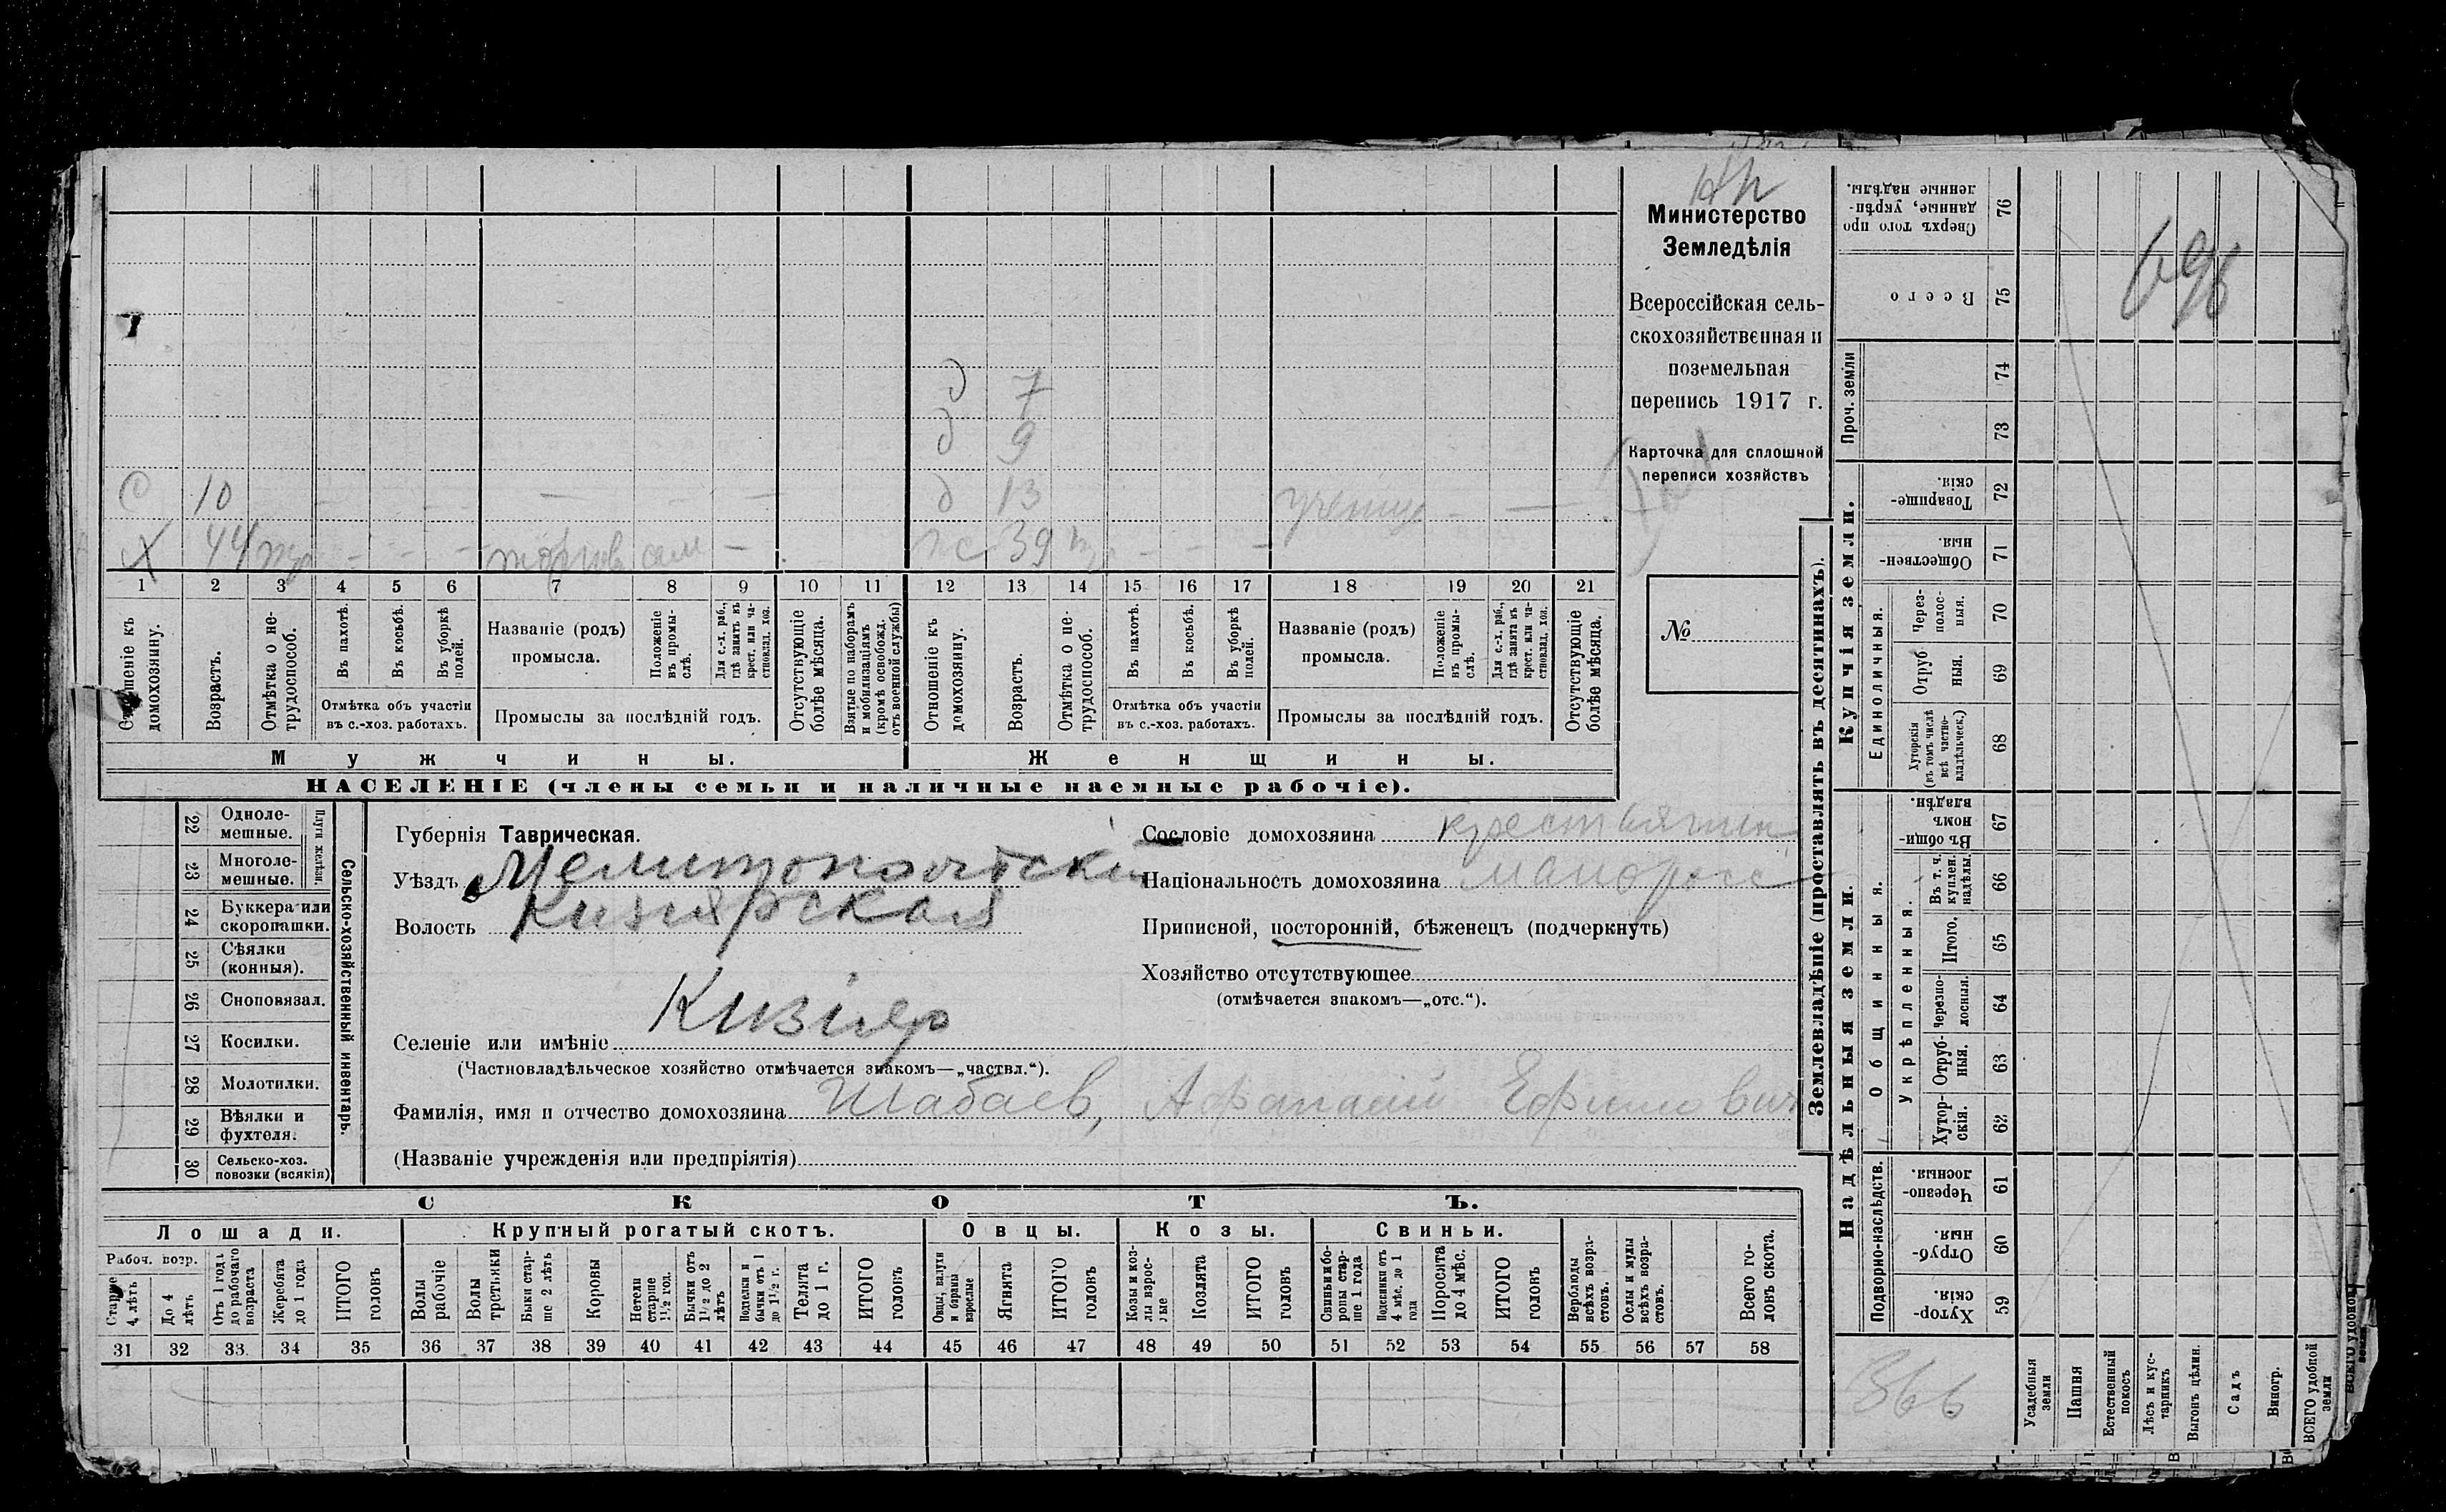 Министерство
Земледѣлія
Всероссійская сель-
скохозяйственная и
поземельная
перепись 1917 г.
Карточка для сплошной
переписи хозяйствъ
№
д 7
д 9
С 10 — — — д 13
Х 44 — — — — 39 — — —
1 2 3 4 5 6 7 8 9 10 11 12 13 14 15 16 17 18 19 20 21
Отношеніе къ домохозяину.
Возрастъ.
Отмѣтка о не-трудоспособ.
Въ пахотѣ.
Въ косьбѣ.
Въ уборкѣ полей.
Отмѣтка объ участіи въ с.-хоз. работахъ.
Названіе (родъ) промысла.
Положеніе въ промы-слѣ.
Для с.-х. раб., гдѣ занятъ въ крест. или ча-стновлад. хоз.
Промыслы за послѣдній годъ.
Отсутствующіе болѣе мѣсяца.
Взятые по наборамъ и мобилизаціямъ (кромѣ освобожд. отъ военной службы)
Отношеніе къ домохозяину.
Возрастъ.
Отмѣтка о не-трудоспособ.
Въ пахотѣ.
Въ косьбѣ.
Въ уборкѣ полей.
Отмѣтка объ участіи въ с.-хоз. работахъ.
Названіе (родъ) промысла.
Положеніе въ промы-слѣ.
Для с.-х. раб., гдѣ занята въ крест. или ча-стновлад. хоз.
Промыслы за послѣдній годъ.
Отсутствующіе болѣе мѣсяца.
Мужчины.
Женщины.
НАСЕЛЕНІЕ (члены семьи и наличные наемные рабочіе).
Сельско-хозяйственный инвентарь.
Плуги желѣзн.
22 Одноле-мешные.
23 Многоле-мешные.
24 Буккера или скоропашки.
25 Сѣялки (конныя).
26 Сноповязал.
27 Косилки.
28 Молотилки.
29 Вѣялки и фухтеля.
30 Сельско-хоз. повозки (всякія)
Губернія Таврическая.
Уѣздъ Мелитопольскій
Волость Кизіярская
Селеніе или имѣніе Кизіяр
(Частновладѣльческое хозяйство отмѣчается знакомъ—„частвл.“).
Фамилія, имя и отчество домохозяина Шабаев, Афанасий Ефимович
(Названіе учрежденія или предпріятія)
Сословіе домохозяина крестьянин
Національность домохозяина малоросс
Приписной, посторонній, бѣженецъ (подчеркнуть)
Хозяйство отсутствующее
(отмѣчается знакомъ—„отс.“).
СКОТЪ.
Лошади.
Рабоч. возр.
Старше 4 лѣтъ
До 4 лѣтъ
Отъ 1 года до рабочаго возраста
Жеребята до 1 года
ИТОГО головъ
Крупный рогатый скотъ.
Волы рабочіе
Волы третьяки
Быки стар-ше 2 лѣтъ
Коровы
Нетели старше 1½ год.
Бычки отъ 1½ до 2 лѣтъ
Подтелки и бычки отъ 1 до 1½ г.
Телята до 1 г.
ИТОГО головъ
Овцы.
Овцы, валухи и бараны взрослые
Ягнята
ИТОГО головъ
Козы.
Козы и коз-лы взрос-лые
Козлята
ИТОГО головъ
Свиньи.
Свиньи и бо-ровы стар-ше 1 года
Подсвинки отъ 4 мѣс. до 1 года
Поросята до 4 мѣс.
ИТОГО головъ
Верблюды всѣхъ возра-стовъ.
Ослы и мулы всѣхъ возра-стовъ.
Всего го-ловъ скота.
31 32 33 34 35 36 37 38 39 40 41 42 43 44 45 46 47 48 49 50 51 52 53 54 55 56 57 58
Землевладѣніе (проставлять въ десятинахъ).
696
Сверхъ того про данные, укрѣп-ленные надѣлы. 76
Всего 75
Проч. земли
74
73
Купчія земли.
Товарище-скія. 72
Обществен-ныя. 71
Единоличныя.
Через-полос-ныя. 70
Отруб ныя. 69
Хуторскія (въ томъ числѣ всѣ частно-владѣльческ.) 68
Надѣльныя земли.
Общинныя.
Въ общи-номъ владѣн. 67
Укрѣпленныя.
Въ т. ч. куплен. надѣлы. 66
Итого. 65
Черезпо-лосныя. 64
Отруб-ныя. 63
Хутор-скія. 62
Подворно-наслѣдств.
Черезпо-лосныя 61
Отруб-ныя. 60
Хутор-скія. 59
366
Усадебныя земли
Пашня
Естественный покосъ
Лѣсъ и кус-тарникъ
Выгонъ цѣлин.
Садъ
Виногр.
ВСЕГО удобной земли